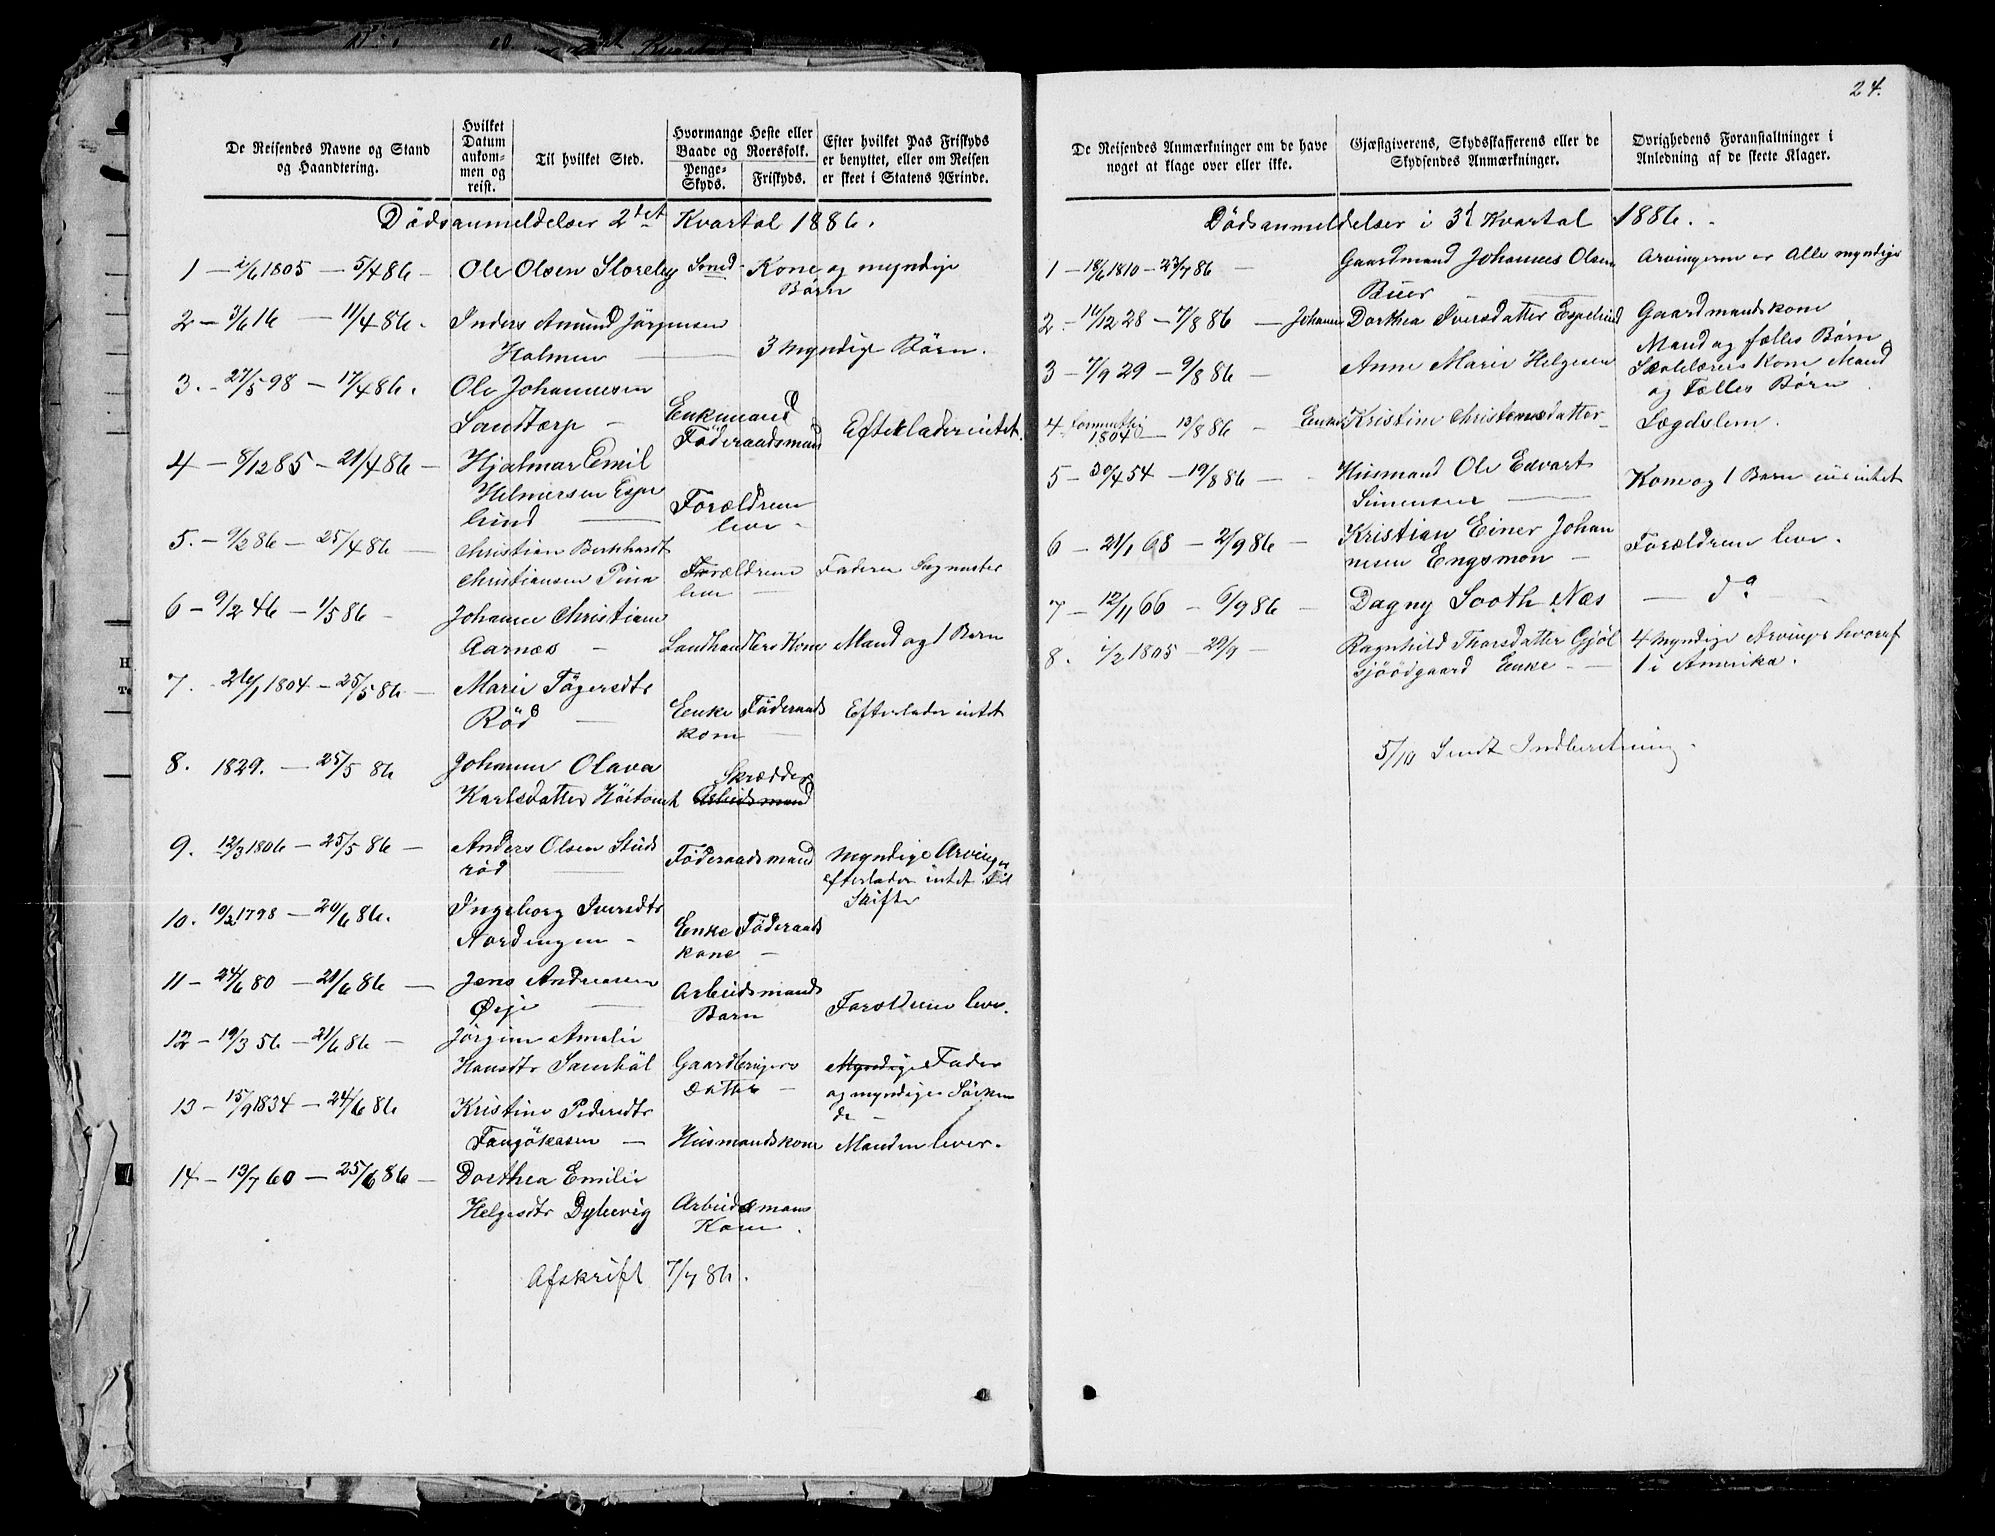 De Reisendes Navne og Stand
og Haandtering.
Hvilket
Datum
ankom-
men og
reist.
Til hvilket Sted.
Hvormange Heste eller
Baade og Roersfolk.
Penge-
Skyds.
Friskyds.
Efter hvilket Pas Friskyds
er benyttet, eller om Reisen
er skeet i Statens Ærinde.
Dødsanmeldelser 2det Kvartal 1886.
1 — 2/6 1805 — 5/4 86 — Ole Olsen Storeby Smed - Kone og myndige
Børn
2 — 3/6 16 — 11/4 86. Inders Amund Jørgensen
Holmen — 3 myndige Børn.
3. - 27/5 98 — 17/4 86. Ole Johannesen
Sandtorp — Enkemand Føderaadsmand Efterlader intet.
4 — 8/12 85 — 21/4 86 — Hjalmar Emil
Helmersen Espe
lund — Forældrene
leve -
5. — 9/2 86 — 25/4 86 — Christian Bernhardt
Christiansen — Forældrene Faderen
leve —
6 — 9/2 46 — 1/5 86 - Johanne Christiane
Aarnæs — Landhandlers Kone Mand og 1 Barn
7. - 26/1 1804 — 25/5 86 — Marie Tøgersdtr
Rød — Enke Føderaads Efterlader intet
kone —
8. 1829. — 25/5 86 Johanne Olava
Skrædder
Karlsdatter Høitomt Arbeidsmand
9. 12/3 1806 — 25/5 86 — Anders Olsen Studs
rød — Føderaadsmand Myndige Arvinger
efterlader intet til
Skifte
10. 10/2 1798 — 20/6 86. Ingeborg Iversdtr
Nordengen - Enke Føderaads
kone —
11 — 24/6 80 — 21/6 86 — Jens Andreasen
Ørje — Arbeidsmands
Barn Forældrene leve.
12 — 19/3 56 — 21/6 86 — Jørgine Amalie
Hansdtr — Gaardbrugers Myndige Fader
Datter — og myndige Søsken
de —
13 — 15/9 1834 — 24/6 86 Kristine Pedersdtr
— Husmandskone Manden lever.
14 — 13/7 60 — 25/6 86 — Dorthea Emilie
Helgesdtr Dybevig Arbeidsmans
Kone.
Afskrift 7/7 86.
24.
De Reisendes Anmærkninger om de have
noget at klage over eller ikke.
Gjæstgiverens, Skydsskafferens eller de
Skydsendes Anmærkninger.
Øvrighedens Foranstaltninger i
Anledning af de skeete Klager.
Dødsanmeldelser i 3d Kvartal 1886.
1 — 18/6 1810 — 23/7 86 — Gaardmand Johannes Olsen Arvingerne er Alle myndige
Buer
2 — 16/12 28 — 7/8 86 — Johanne Dorthea Iversdatter Espelund Gaardmandskone
Mand og fælles Børn
3 — 7/9 29 — 9/8 86 — Anne Marie Helgesen Skolelærers Kone Mand
og Fælles Børn
4 1804 — 13/8 86 — Enke Kristine Christensdatter — Lægdslem.
5 — 30/4 54 — 19/8 86 — Husmand Ole Edvart
Simensen — Kone og 1 Barn
6 — 21/1 68 — 2/9 86 — Kristian Einer Johan
nesen Engsmon — Forældrene leve.
7 — 12/11 66 — 6/9 86 — Dagny Sooth Næs — do —
8. 1/2 1805 — 20/9 — Ragnhild Thorsdatter Gjøl 4 myndige Arvinger hvoraf
sjøødgaard Enke — 1 i Amerika.
5/10 Sendt Indberetning.